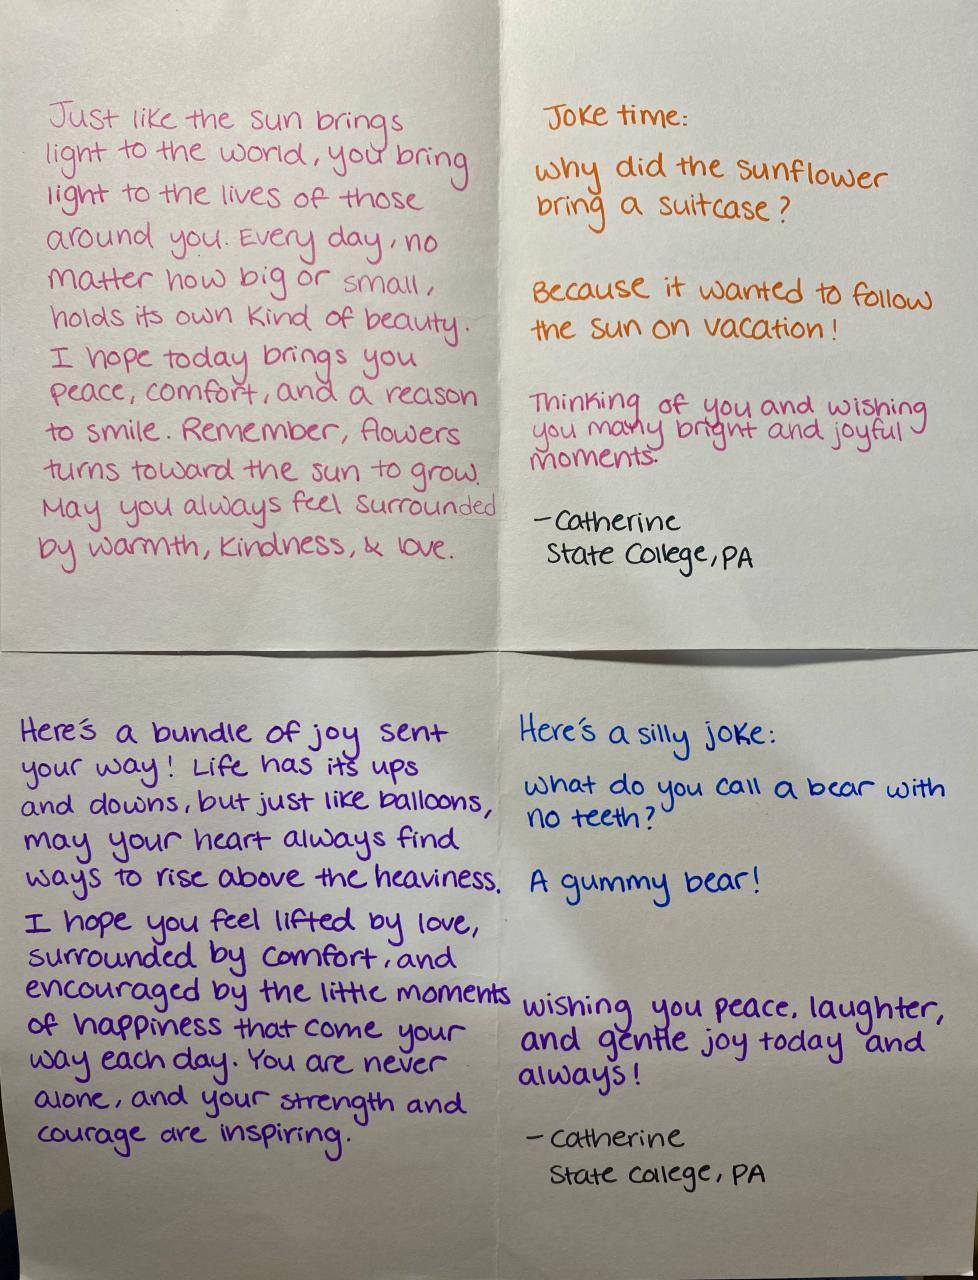 Just like the sun brings
light to the world, you bring
light to the lives of those
around you. Every day, no
matter how big or small,
holds its own kind of beauty.
I hope today brings you
peace, comfort, and a reason
to smile. Remember, flowers
turns toward the sun to grow.
May you always feel surrounded
by warmth, kindness, & love.
Joke time:
Why did the sunflower
bring a suitcase?
Because it wanted to follow
the sun on vacation!
Thinking of you and wishing
you many bright and joyful
moments.
- Catherine
State College, PA
Here's a bundle of joy sent
your way! Life has its ups
and downs, but just like balloons,
may your heart always find
ways to rise above the heaviness.
I hope you feel lifted by love,
surrounded by comfort, and
encouraged by the little moments
of happiness that come your
way each day. You are never
alone, and your strength and
courage are inspiring.
Here's a silly joke:
What do you call a bear with
no teeth?
A gummy bear!
Wishing you peace, laughter,
and gentle joy today and
always!
- Catherine
State College, PA